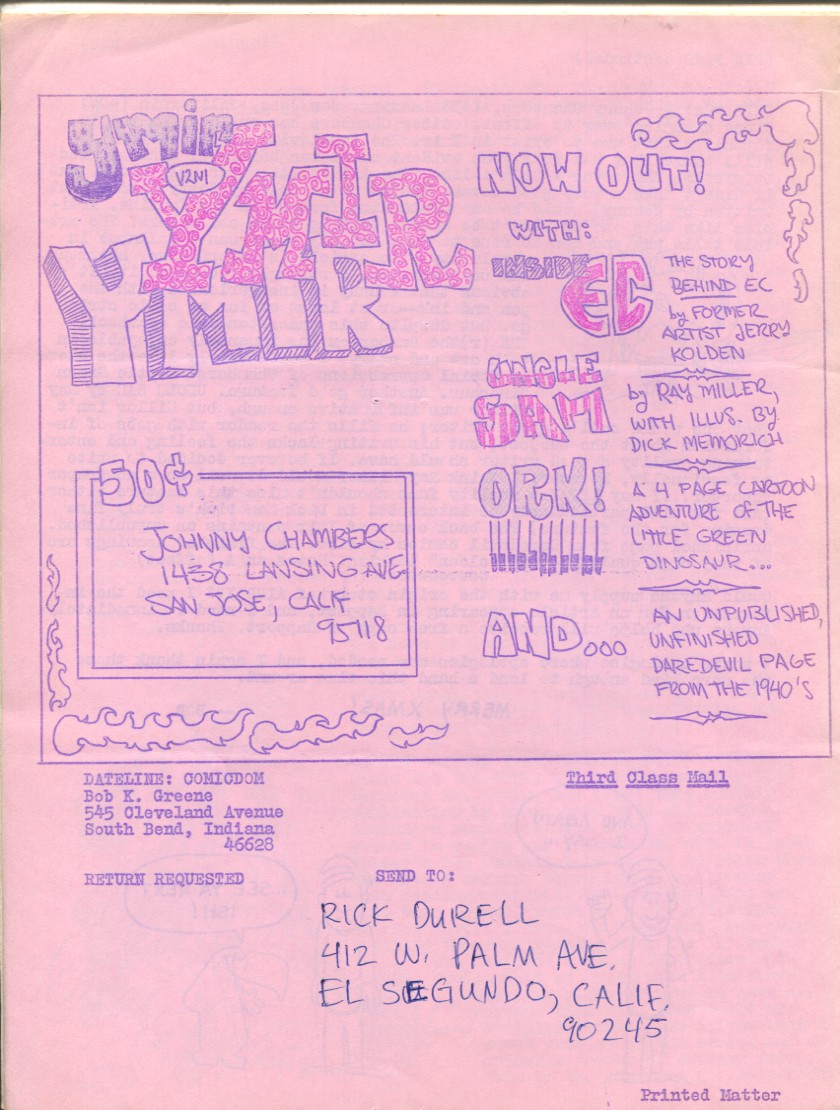 YMIR
V2N1
YMIR
YMIR
NOW OUT!
WITH:
INSIDE
EC
THE STORY
BEHIND EC
by FORMER
ARTIST JERRY
KOLDEN
UNCLE
SAM
by RAY MILLER,
WITH ILLUS. BY
DICK MEMORICH
ORK!
A 4 PAGE CARTOON
ADVENTURE OF THE
LITTLE GREEN
DINOSAUR...
AND...
AN UNPUBLISHED,
UNFINISHED
DAREDEVIL PAGE
FROM THE 1940'S
50¢
JOHNNY CHAMBERS
1438 LANSING AVE.
SAN JOSE, CALIF
95118
DATELINE: COMICDOM
Bob K. Greene
545 Cleveland Avenue
South Bend, Indiana
46628
Third Class Mail
RETURN REQUESTED
SEND TO:
RICK DURELL
412 W. PALM AVE.
EL SEGUNDO, CALIF.
90245
Printed Matter